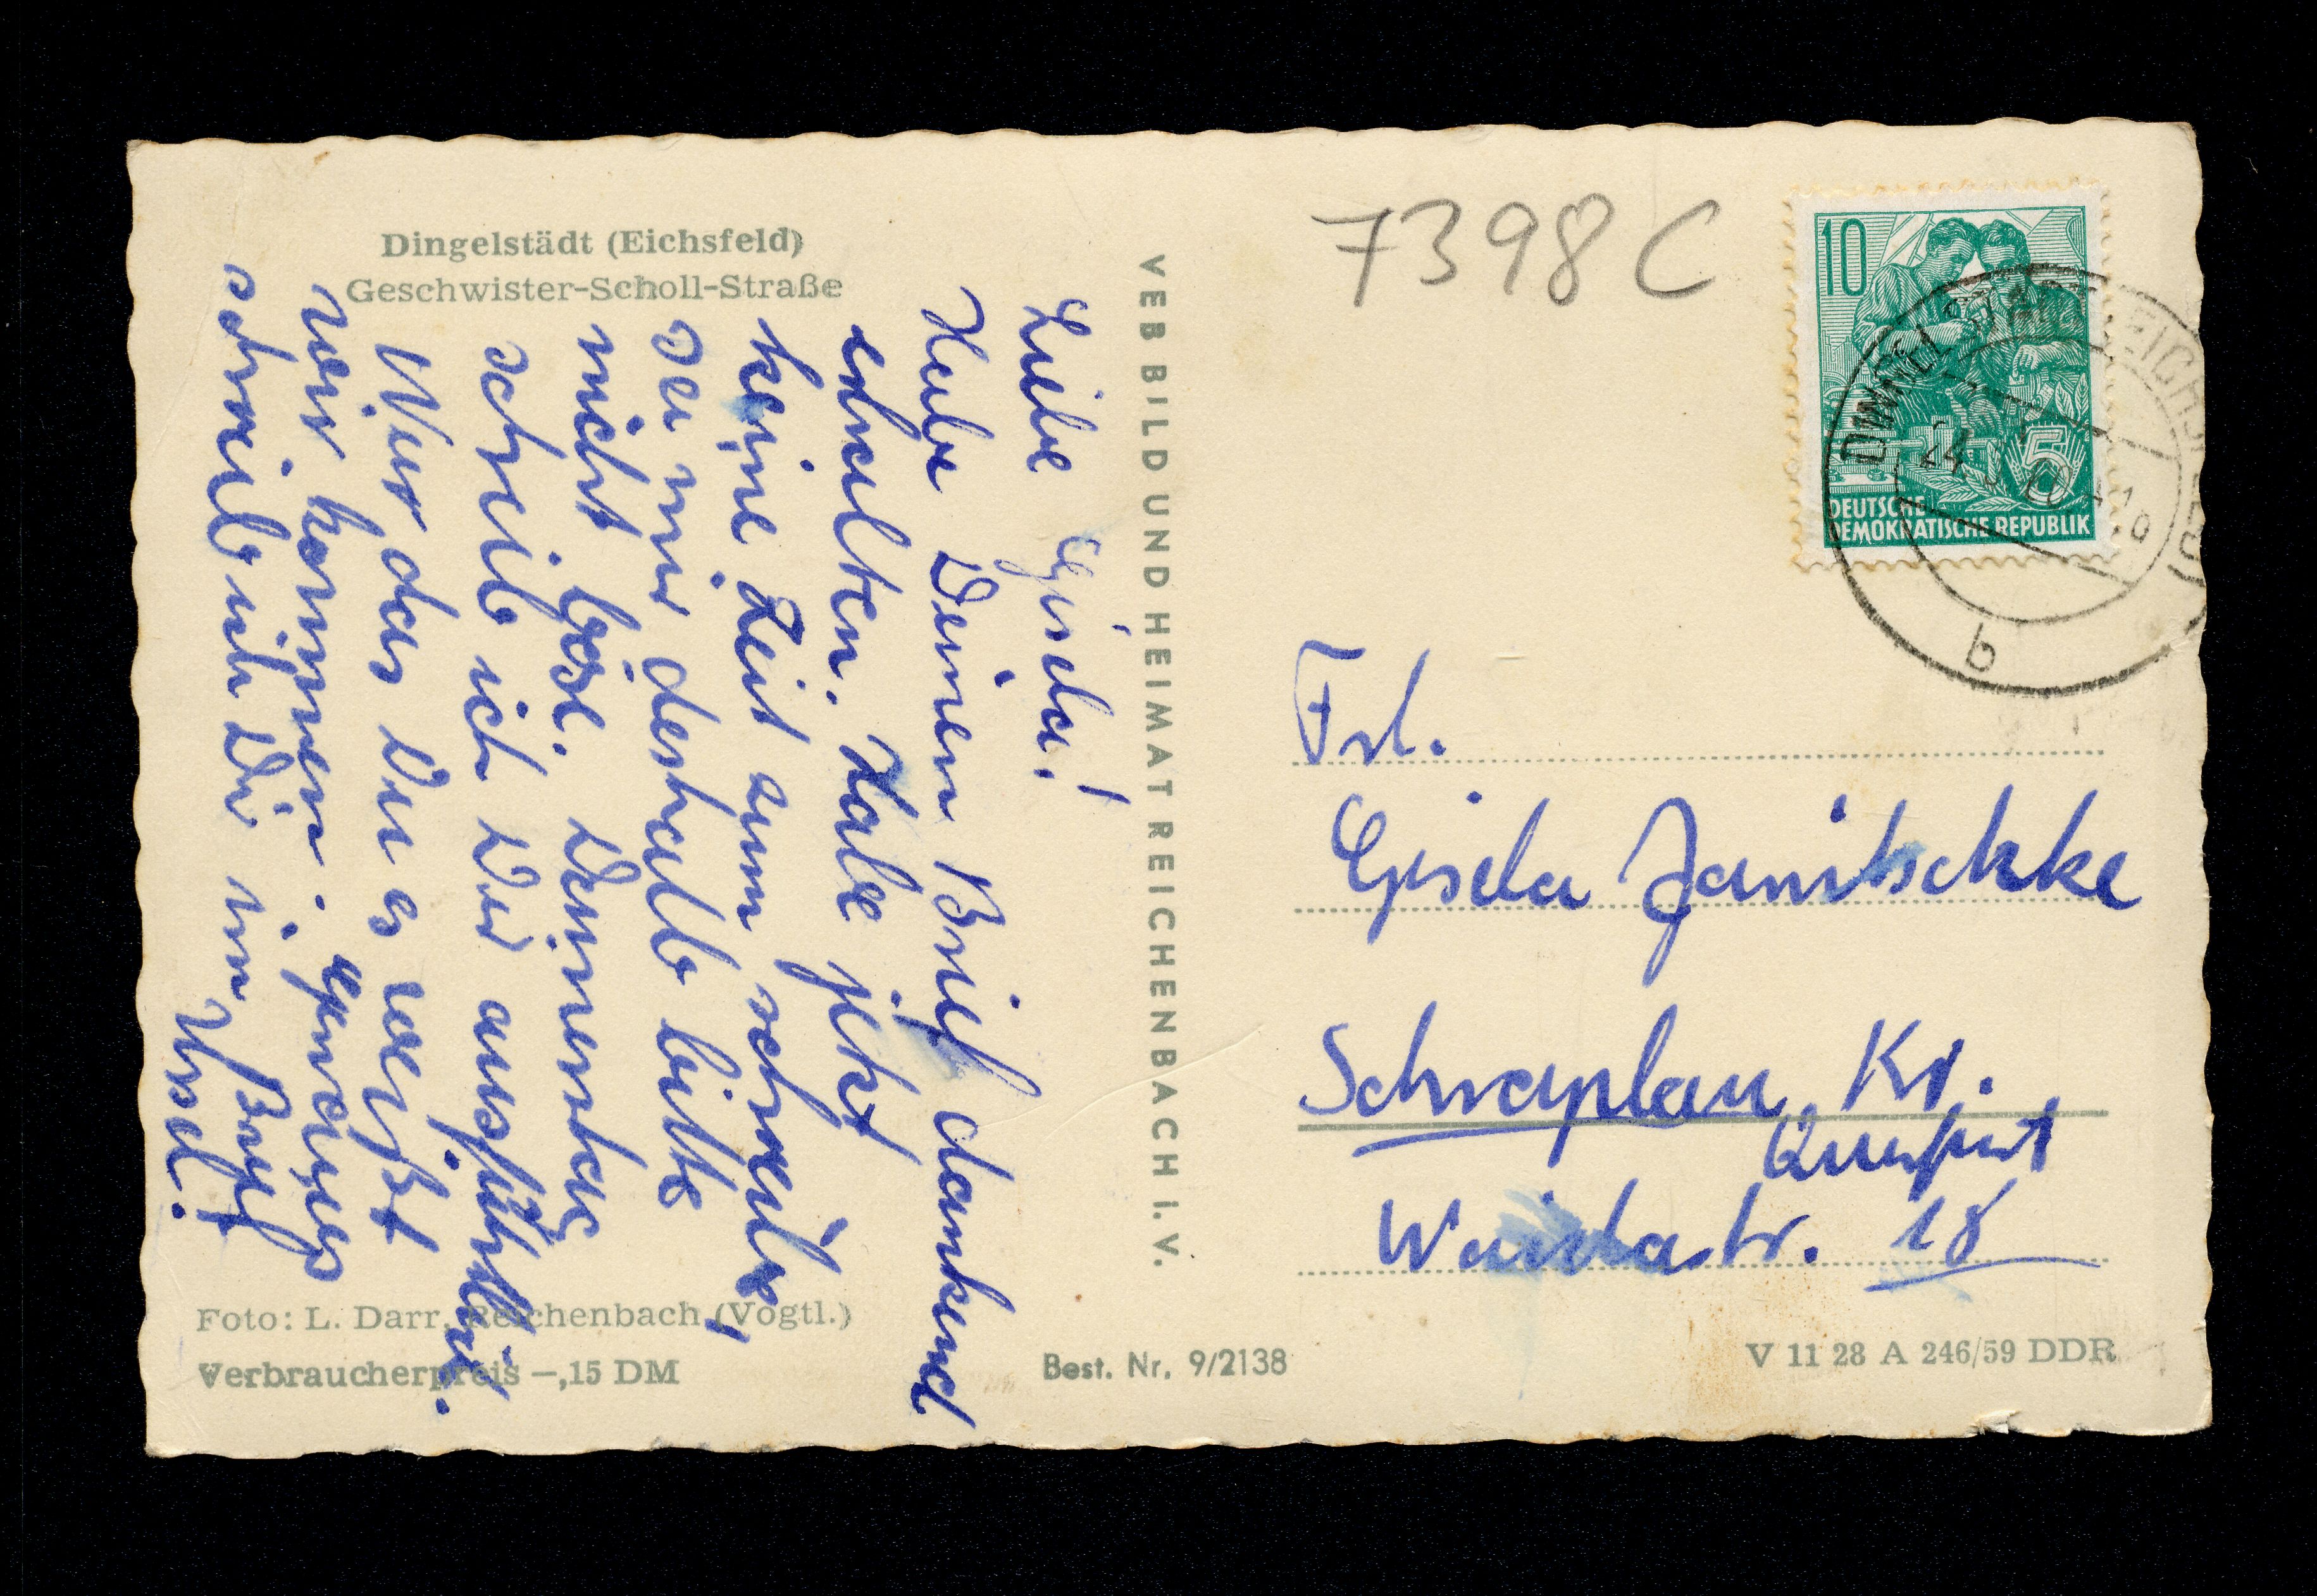 Dingelstädt (Eichsfeld)
Geschwister-Scholl-Straße
Liebe Gisela!
Habe Deinen Brief dankend
erhalten. Habe jetzt
keine Zeit zum schreiben,
sei mir deshalb bitte
nicht böse. Demnerstag
schreib ich Dir ausführlich.
Nur das Du es weißt
wir kommen. Genaues
schreib ich Dir im Brief
Ursel.
Foto: L. Darr, Reichenbach (Vogtl.)
Verbraucherpreis –,15 DM
VEB BILD UND HEIMAT REICHENBACH I. V.
Best. Nr. 9/2138
7398 C
10
5
DEUTSCHE
DEMOKRATISCHE REPUBLIK
DINGELSTÄDT (EICHSFELD)
24
b
Frl.
Gisela Janitschke
Schraplau Kr.
Querfurt
Weidastr. 18
V 11 28 A 246/59 DDR